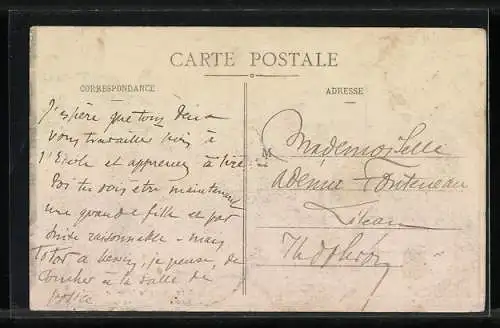 CARTE POSTALE
CORRESPONDANCE
ADRESSE
J'espère que tous deux
vous travaillez bien à
l'Ecole et apprenez à lire
Toi tu dois être maintenant
une grande fille et par
suite raisonnable - mais
Totor a besoin, je pense, de
coucher à la salle de
police
Mademoiselle
Fonteneau